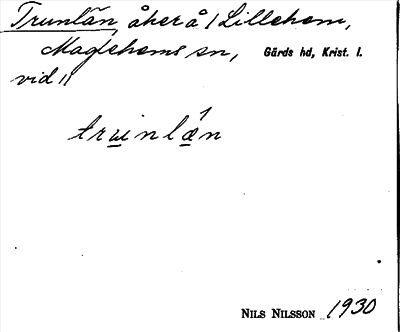 Trunlän, åker å / Lillehem,
Maglehems sn, Gärds hd, Krist. l.
vid //
truinlæ´n
NILS NILSSON 1930